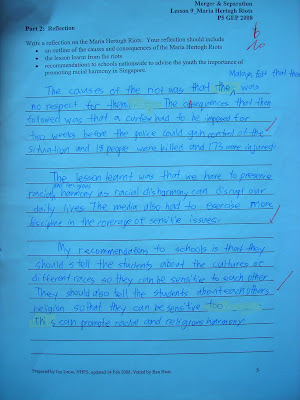 Merger & Separation
Lesson 9_Maria Hertogh Riots
PS GEP 2008
Part 2: Reflection
6
10
Write a reflection on the Maria Hertogh Riots. Your reflection should include
• an outline of the causes and consequences of the Maria Hertogh Riots
• the lesson learnt from the riots
• recommendations to schools nationwide to advice the youth the importance of
promoting racial harmony in Singapore.
Malays felt that there
The causes of the riot was that was
no respect for them. The consequences that then
followed was that a curfew had to be imposed for
two weeks before the police could gain control of the
situation and 18 people were killed and 173 more injured.
The lesson learnt was that we have to preserve
racial and religious harmony as racial disharmony can disrupt our
daily lives. The media also had to exercise more
discipline in the coverage of sensitive issues.
My recommendation to schools is that they
should tell the students about the cultures of
different races so they can be sensitive to each other.
They should also tell the students about each others
religion so that they can be sensitive too
This can promote racial and religious harmony.
5